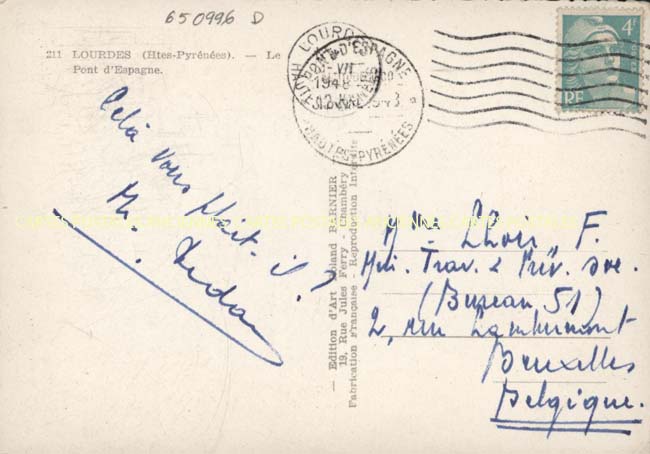 650996 D
211 LOURDES (Htes-Pyrénées). — Le
Pont d'Espagne.
LOURDES
PONT D'ESPAGNE
1948
HAUTES-PYRÉNÉES
4F
RF
Celà vous plait-il?
— Edition d'Art Roland BARNIER
19, Rue Jules Ferry - Chambéry
Fabrication Française - Reproduction Interdite
F.
Min. Trav. & Prév. soc.
(Bureau 51)
2, rue Lambermont
Bruxelles
Belgique.